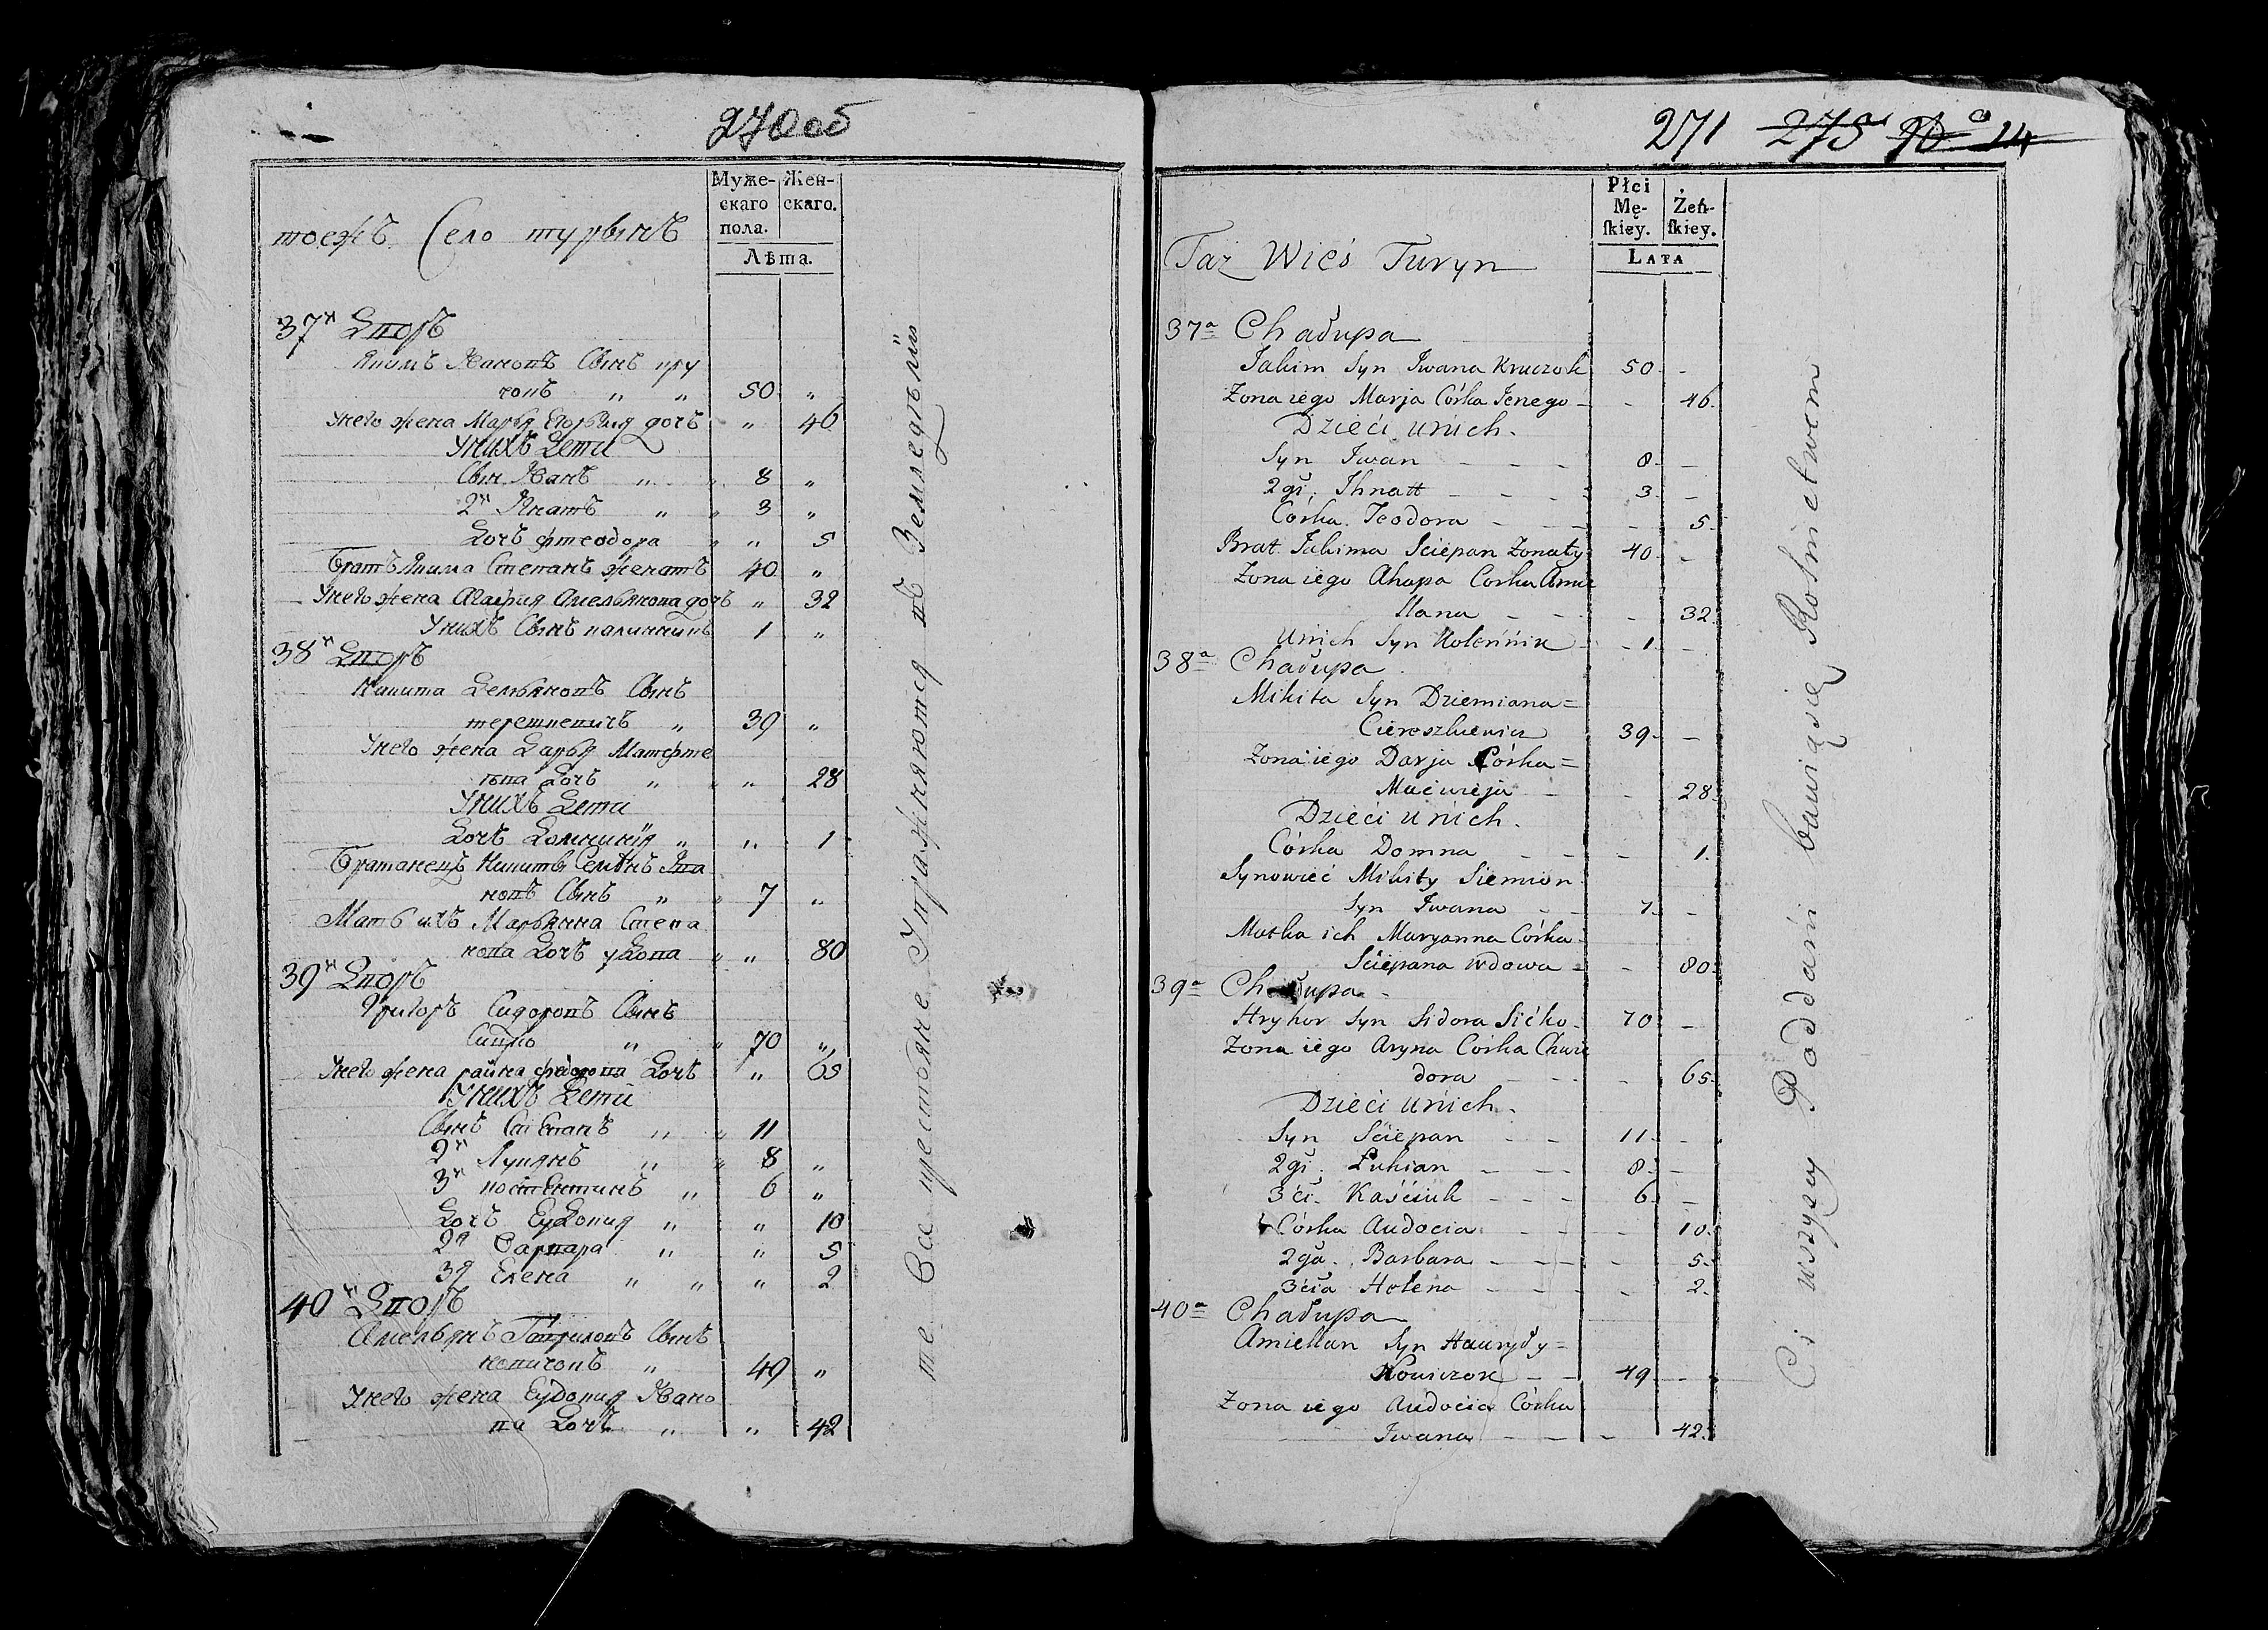 270об
Муже-скаго пола.
Жен-скаго.
Лѣта.
тоежъ Село турынъ
37й Дворъ
Якимъ Ивановъ Сынъ кру
чокъ „ „ 50 „
Унего жена Марья дочъ „ 46
Унихъ Дети
Сын Иванъ „ „ 8 „
2й Игнатъ „ „ 3 „
Дочъ Фтеодора „ „ 5
Братъ Якима Степанъ женатъ 40 „
Унего жена Агафия Амельянова дочъ „ 32
Унихъ Сынъ калинникъ 1 „
38й Дворъ
Никита Демьяновъ Сынъ
терешкевичъ „ 39 „
Унего жена Дарья Матфее
ва Дочъ „ „ „ 28
Унихъ Дети
Дочъ Домникия „ „ 1
Братанецъ Никиты Семёнъ Ива
новъ Сынъ „ „ 7 „
Мать ихъ Марьянна Степа
нова Дочъ уДова „ „ 80
39й Дворъ
Григоръ Сидоровъ Сынъ
Сицко „ „ 70 „
Унего жена райна федорова Дочъ „ 65
Унихъ Дети
Сынъ Степанъ „ „ 11
2й Лукянъ „ „ 8 „
3й костентинъ „ 6 „
Дочъ Еудокия „ „ 10
2я Варвара „ „ 5
3я Елена „ „ „ 2
40й Дворъ
Амельянъ Гавриловъ Сынъ
новичокъ „ 49 „
Унего жена Еудокия Ивано
ва Дочъ „ „ 42
те Вс крестьяне Упражняются въ Земледѣлiи
271 275 14
Płci Mę-skiey.
Żeń-skiey.
Lata
Taż Wieś Turyn
37a Chałupa
Jakim Syn Jwana Kruczok 50 -
Żona iego Marja Córka - - 46.
Dzieci unich.
Syn Jwan - - - 8 -
2gi. Jhnatt - - - 3 -
Córka Teodora - - - - 5
Brat Jakima Sciepan Żonaty 40 -
Żona iego Ahapa Corka Amie
llana - - - 32
Unich Syn Kalennik - 1 -
38a Chałupa
Mikita Syn Dziemiana =
Ciereszkiewicz 39 -
Żona iego Darja Córka =
Maciwieja - - 28
Dzieci unich.
Córka Domna - - - 1.
Synowieć Mikity Siemion
Syn Jwana - - 7 -
Matka ich Maryanna Córka
Sciepana wdowa - - 80
39a Chałupa -
Hryhor Syn Sidora Sićko 70 -
Żona iego Aryna Córka Chwie
dora - - - - 65
Dzieci unich.
Syn Sciepan - - 11 -
2gi. Łukian - - - 8 -
3ci. Kaściuk - - - 6 -
Córka Audocia - - - 10
2ga. Barbara - - - - 5
3cia Holena - - - - 2
40a Chałupa
Amiellan Syn Hauryły =
Nowiczok - - 49 - -
Żona iego Audocia Córka
Jwana - - - 42
Ci wszyscy Poddani bawią się Rolnictwem